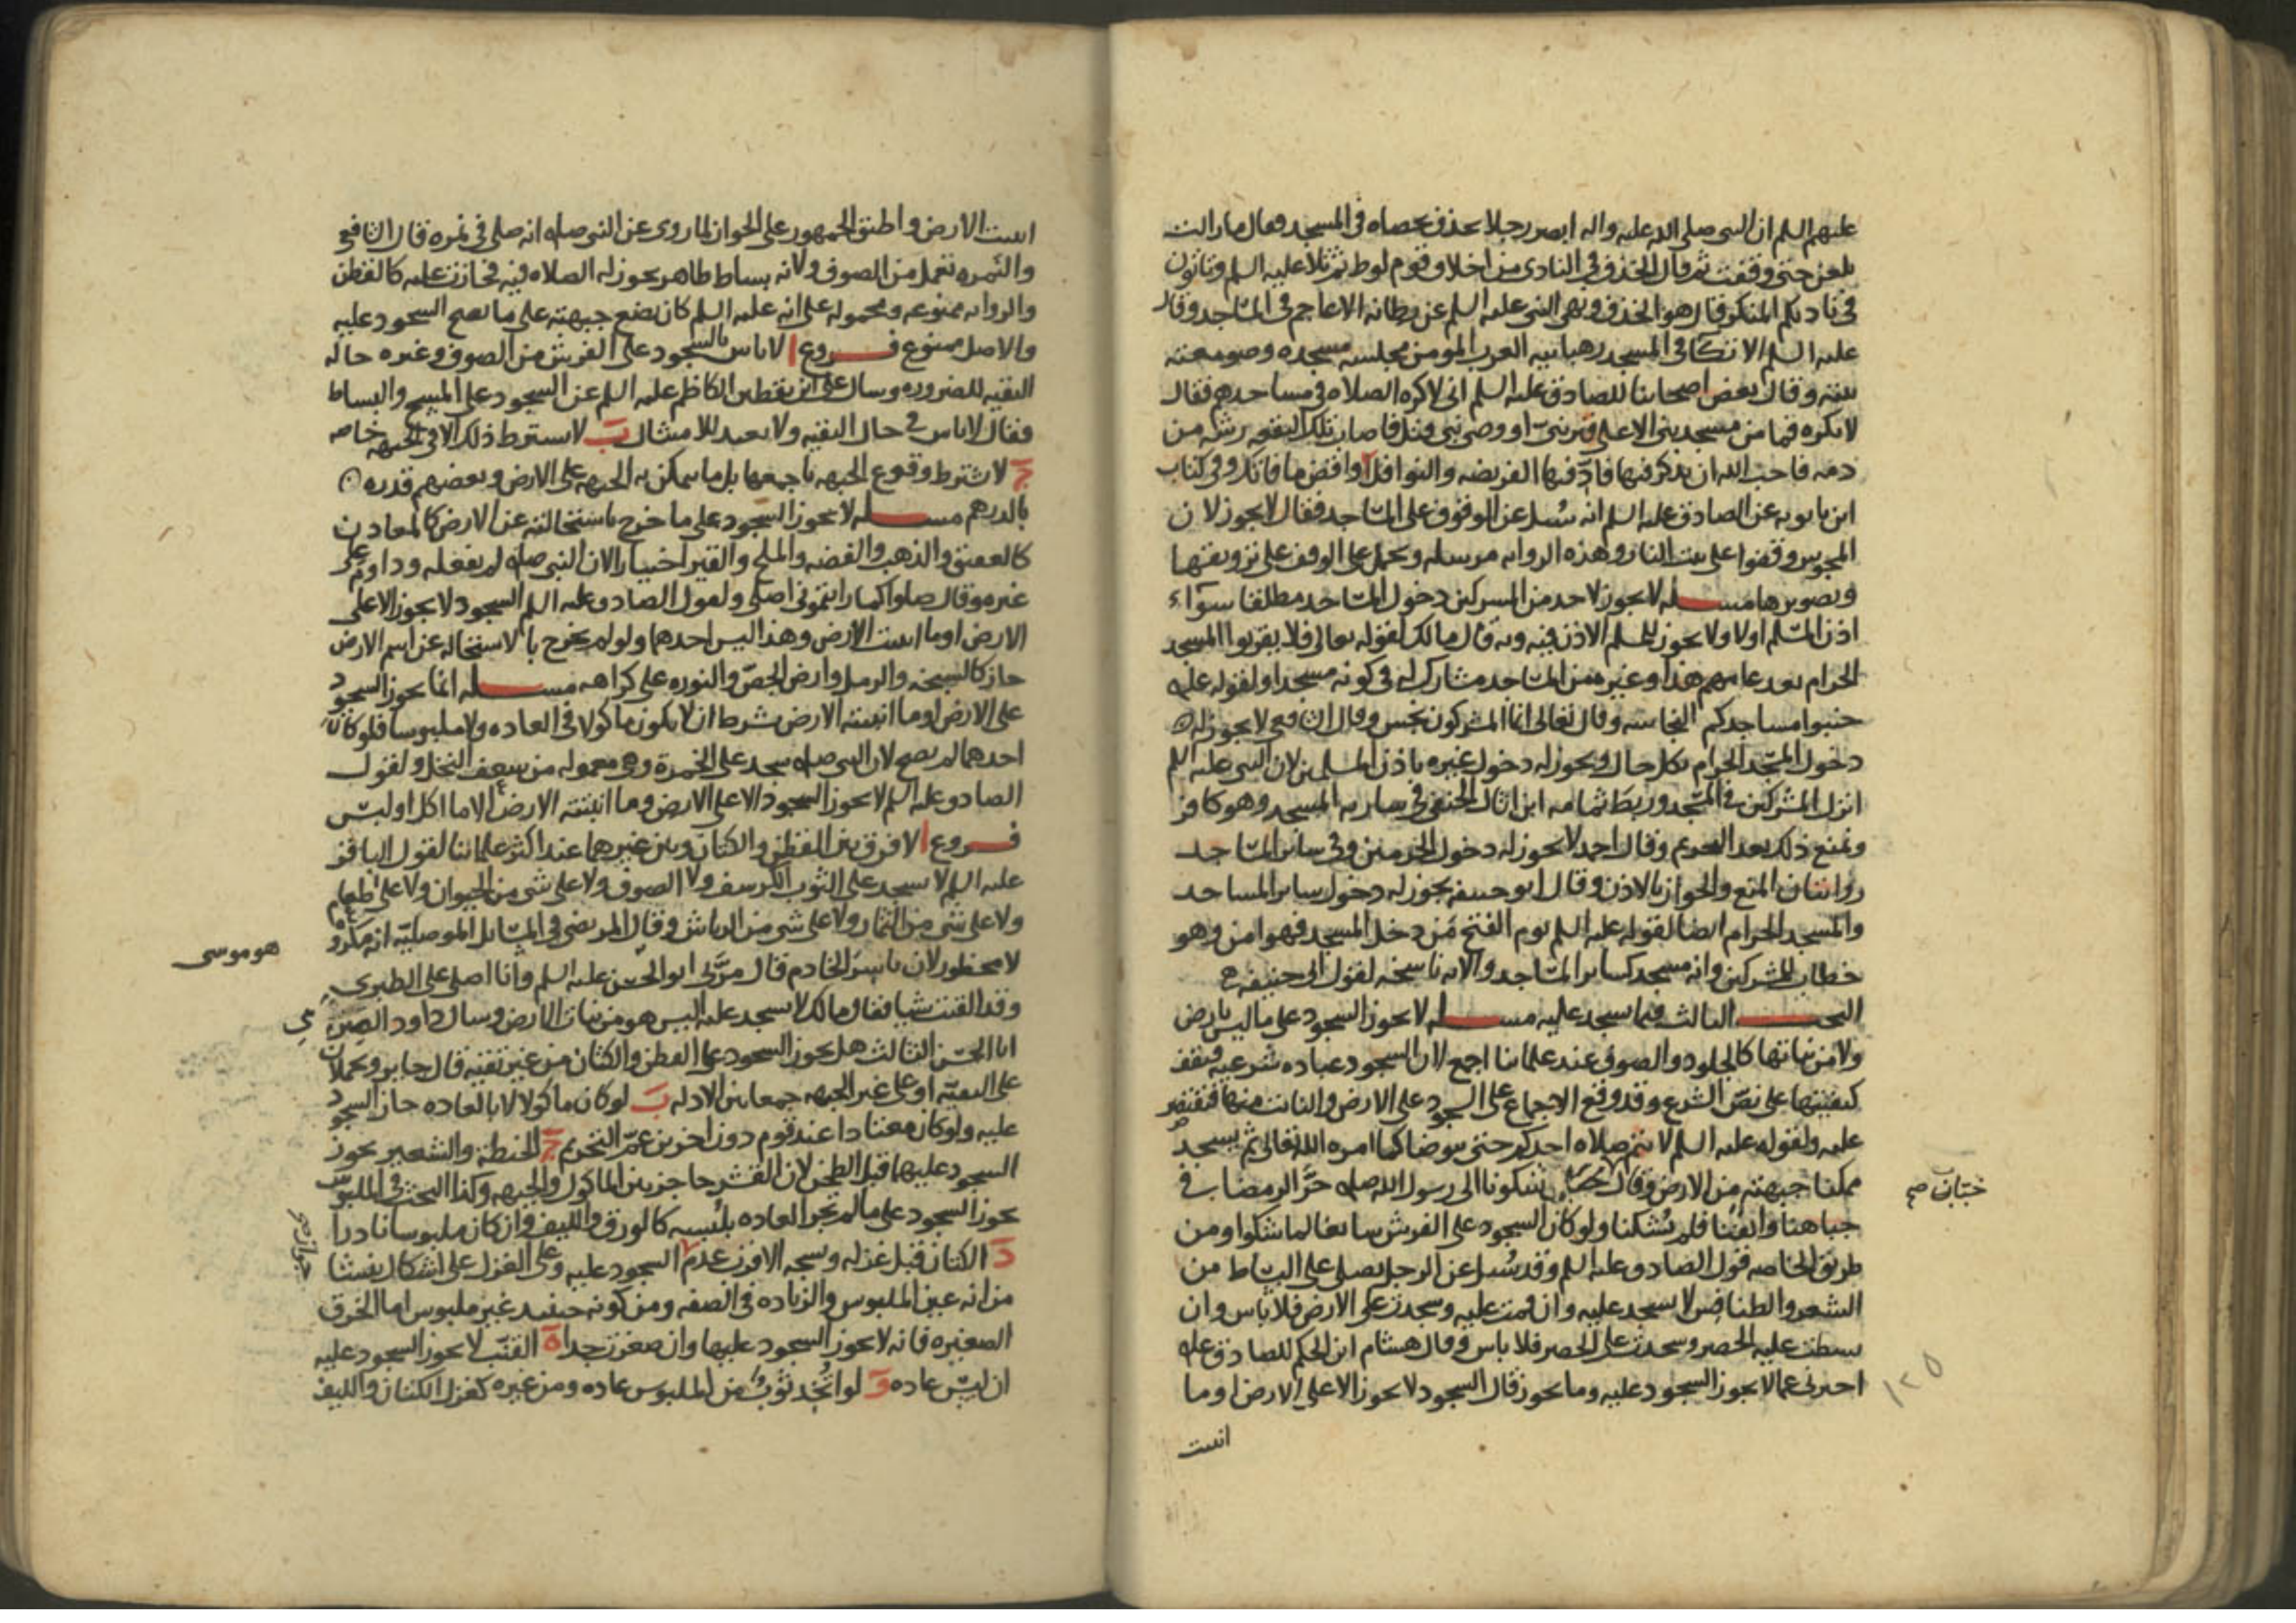 عليهم السلم ان النبى صلى الله عليه واله ابصر رجلا يحذف بحصاه فى المسجد فقال ما زالت
تلعن حتى وقعت ثم قال الخذف فى النادى من اخلاق قوم لوط ثم تلا عليه السلم وتاتون
فى ناديكم المنكر قال هو الخذف ونهى النبى عليه السلم عن رطانه الاعاجم فى المساجد وقال
عليه السلم الاتكا فى المسجد رهبانيه العرب المومن مجلسه مسجده وصومعته
بيته وقال بعض اصحابنا للصادق عليه السلم انى لاكره الصلاه فى مساجدهم فقال
لا تكره فما من مسجد بنى الا على قبر نبى او وصى نبى قتل فاصاب تلك البقعه رشه من
دمه فاحب الله ان يذكر فيها فادّ فيها الفريضه والنوافل واقض ما فاتك وفى كتاب
ابن بابويه عن الصادق عليه السلم انه سُئل عن الوقوف على المساجد فقال لا يجوز لان
المجوس وقفوا على بيت النار وهذه الروايه مرسله وتحمل على الوقف على تزويقها
وتصويرها مسله لا يجوز لاحد من المشركين دخول المساجد مطلقا سوآء
اذن المسلم او لا ولا يجوز للمسلم الاذن فيه وبه قال مالك لقوله تعالى فلا يقربوا المسجد
الحرام بعد عامهم هذا وغيره من المساجد مشارك له فى كونه مسجدا ولقوله عليه
جنبوا مساجدكم النجاسه وقال تعالى انما المشركون نجس وقال الشافعى لا يجوز له
دخول المسجد الحرام بكل حال ويجوز له دخول غيره باذن المسلمين لان النبى عليه السلم
انزل المشركين فى المسجد وربط ثمامه ابن اثال الحنفى فى ساريه المسجد وهو كافر
ونمنع ذلك بعد التحريم وقال احمد لا يجوز له دخول الحرمين وفى سائر المساجد
روايتان المنع والجواز بالاذن وقال ابو حنيفه يجوز له دخول ساير المساجد
والمسجد الحرام ايضا لقوله عليه السلم يوم الفتح من دخل المسجد فهو امن وهو
خطاب للمشركين وانه مسجد كساير المساجد والآيه ناسخه لقول ابى حنيفه
البحث الثالث فيما يسجد عليه مسله لا يجوز السجود على ما ليس بارض
ولا من نباتها كالجلود والصوف عند علماينا اجمع لان السجود عباده شرعيه فيقف
كيفيتها على نصّ الشرع وقد وقع الاجماع على السجود على الارض والنابت منها فيقتصر
عليه ولقوله عليه السلم لا تتم صلاه احدكم حتى يتوضا كما امره الله تعالى ثم يسجد
ممكنا جبهته من الارض وقال شكونا الى رسول الله صله حَرَّ الرمضا فى
جباهنا واكفنا فلم يُشكنا ولو كان السجود على الفرش سايغا لما شكوا ومن
طريق الخاصه قول الصادق عليه السلم وقد سُئل عن الرجل يصلى على البساط من
الشعر والطنافس لا يسجد عليه وان قمت عليه وسجدت على الارض فلا باس وان
بسطت عليه الحصير وسجدت على الحصير فلا باس وقال هشام ابن الحكم للصادق عليه
اخبرنى عما لا يجوز السجود عليه وما يجوز قال السجود لا يجوز الا على الارض او ما
انبتت
خباب صح
١٢٥
انبتت الارض واطبق الجمهور على الجواز لما روى عن النبى صله انه صلى فى نمره قال الشافعى
والنمره تعمل من الصوف ولانه بساط طاهر يجوز له الصلاه فيه فجازت عليه كالقطن
والروايه ممنوعه ومحموله على انه عليه السلم كان يضع جبهته على ما يصح السجود عليه
والاصل ممنوع فروع ا لا باس بالسجود على الفرش من الصوف وغيره حاله
التقيه للضروره وسال على ابن يقطين الكاظم عليه السلم عن السجود على المسح والبساط
فقال لا باس فى حال التقيه ولا يعيد للامتثال ب لا يشترط ذلك الا فى الجبهه خاصه
ج لا يشترط وقوع الجبهه باجمعها بل ما يمكن به الجبهه على الارض وبعضهم قدره
بالدرهم مسله لا يجوز السجود على ما خرج باستحالته عن الارض كالمعادن
كالعقيق والذهب والفضه والملح والقير اختيارا لان النبى صله لم يفعله وداوم على
غيره وقال صلوا كما رايتمونى اصلى ولقول الصادق عليه السلم السجود لا يجوز الا على
الارض او ما انبتت الارض وهذا ليس احدهما ولو لم يخرج بالاستحاله عن اسم الارض
جاز كالسبخه والرمل وارض الجصّ والنوره على كراهيه مسله انما يجوز السجود
على الارض او ما انبتته الارض بشرط ان لا يكون ماكولا فى العاده ولا ملبوسا فلو كان
احدهما لم يصح لان النبى صله سجد على الخمرة وهى معموله من سعف النخل ولقول
الصادق عليه السلم لا يجوز السجود الا على الارض وما انبتته الارض الا ما اكل او لبس
فروع ا لا فرق بين القطن والكتان وبين غيرهما عند اكثر علماينا لقول الباقر
عليه السلم لا يسجد على الثوب الكرسف ولا الصوف ولا على شى من الحيوان ولا على طعام
ولا على شى من الثمار ولا على شى من الرياش وقال المرتضى فى المسائل الموصليه انه مكروه
لا محظور لان ياسر الخادم قال مرّ بى ابو الحسن عليه السلم وانا اصلى على الطبرى
وقد القيت شيا فقال مالك لا تسجد عليه اليس هو من نبات الارض وسال داود الصرمى
ابا الحسن الثالث هل يجوز السجود على القطن والكتان من غير تقيه قال جايز ويحملان
على التقيه او على غير الجبهه جمعا بين الادله ب لو كان ماكولا لا بالعاده جاز السجود
عليه ولو كان معتادا عند قوم دون اخرين عمّ التحريم ج الحنطه والشعير يجوز
السجود عليها قبل الطحن لان القشر حاجز بين الماكول والجبهه وكذا البحث فى الملبوس
يجوز السجود على ما لم تجر العاده بلبسه كالورق والليف وان كان ملبوسا نادرا
د الكتان قبل غزله ونسجه الاقرب عدم السجود عليه وعلى الغزل على اشكال ينشا
من انه عين الملبوس والزياده فى الصفه ومن كونه حينيد غير ملبوس اما الخرق
الصغيره فانه لا يجوز السجود عليها وان صغرت جدا ه القنّب لا يجوز السجود عليه
ان لبس عاده و لو اتُّخد ثوبٌ من الملبوس عاده ومن غيره كغزل الكتان والليف
هو موسى